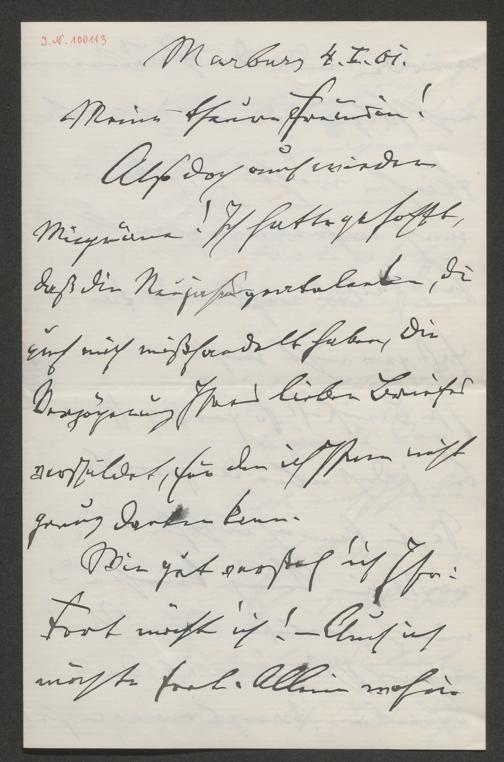 J.N. 100113
Marburg 4.I.01.
Meine theure Freundin!
Also doch auch wieder
Migräne! Ich hatte gehofft,
daß die Neujahrsgratulanten, die
auch mich mißhandelt haben, die
Verzögerung Ihres lieben Briefes
verschuldet, für den ich Ihnen nicht
genug danken kann.
Wie gut versteh' ich Ihr:
Fort möcht' ich! – Auch ich
möchte fort. Allein wohin